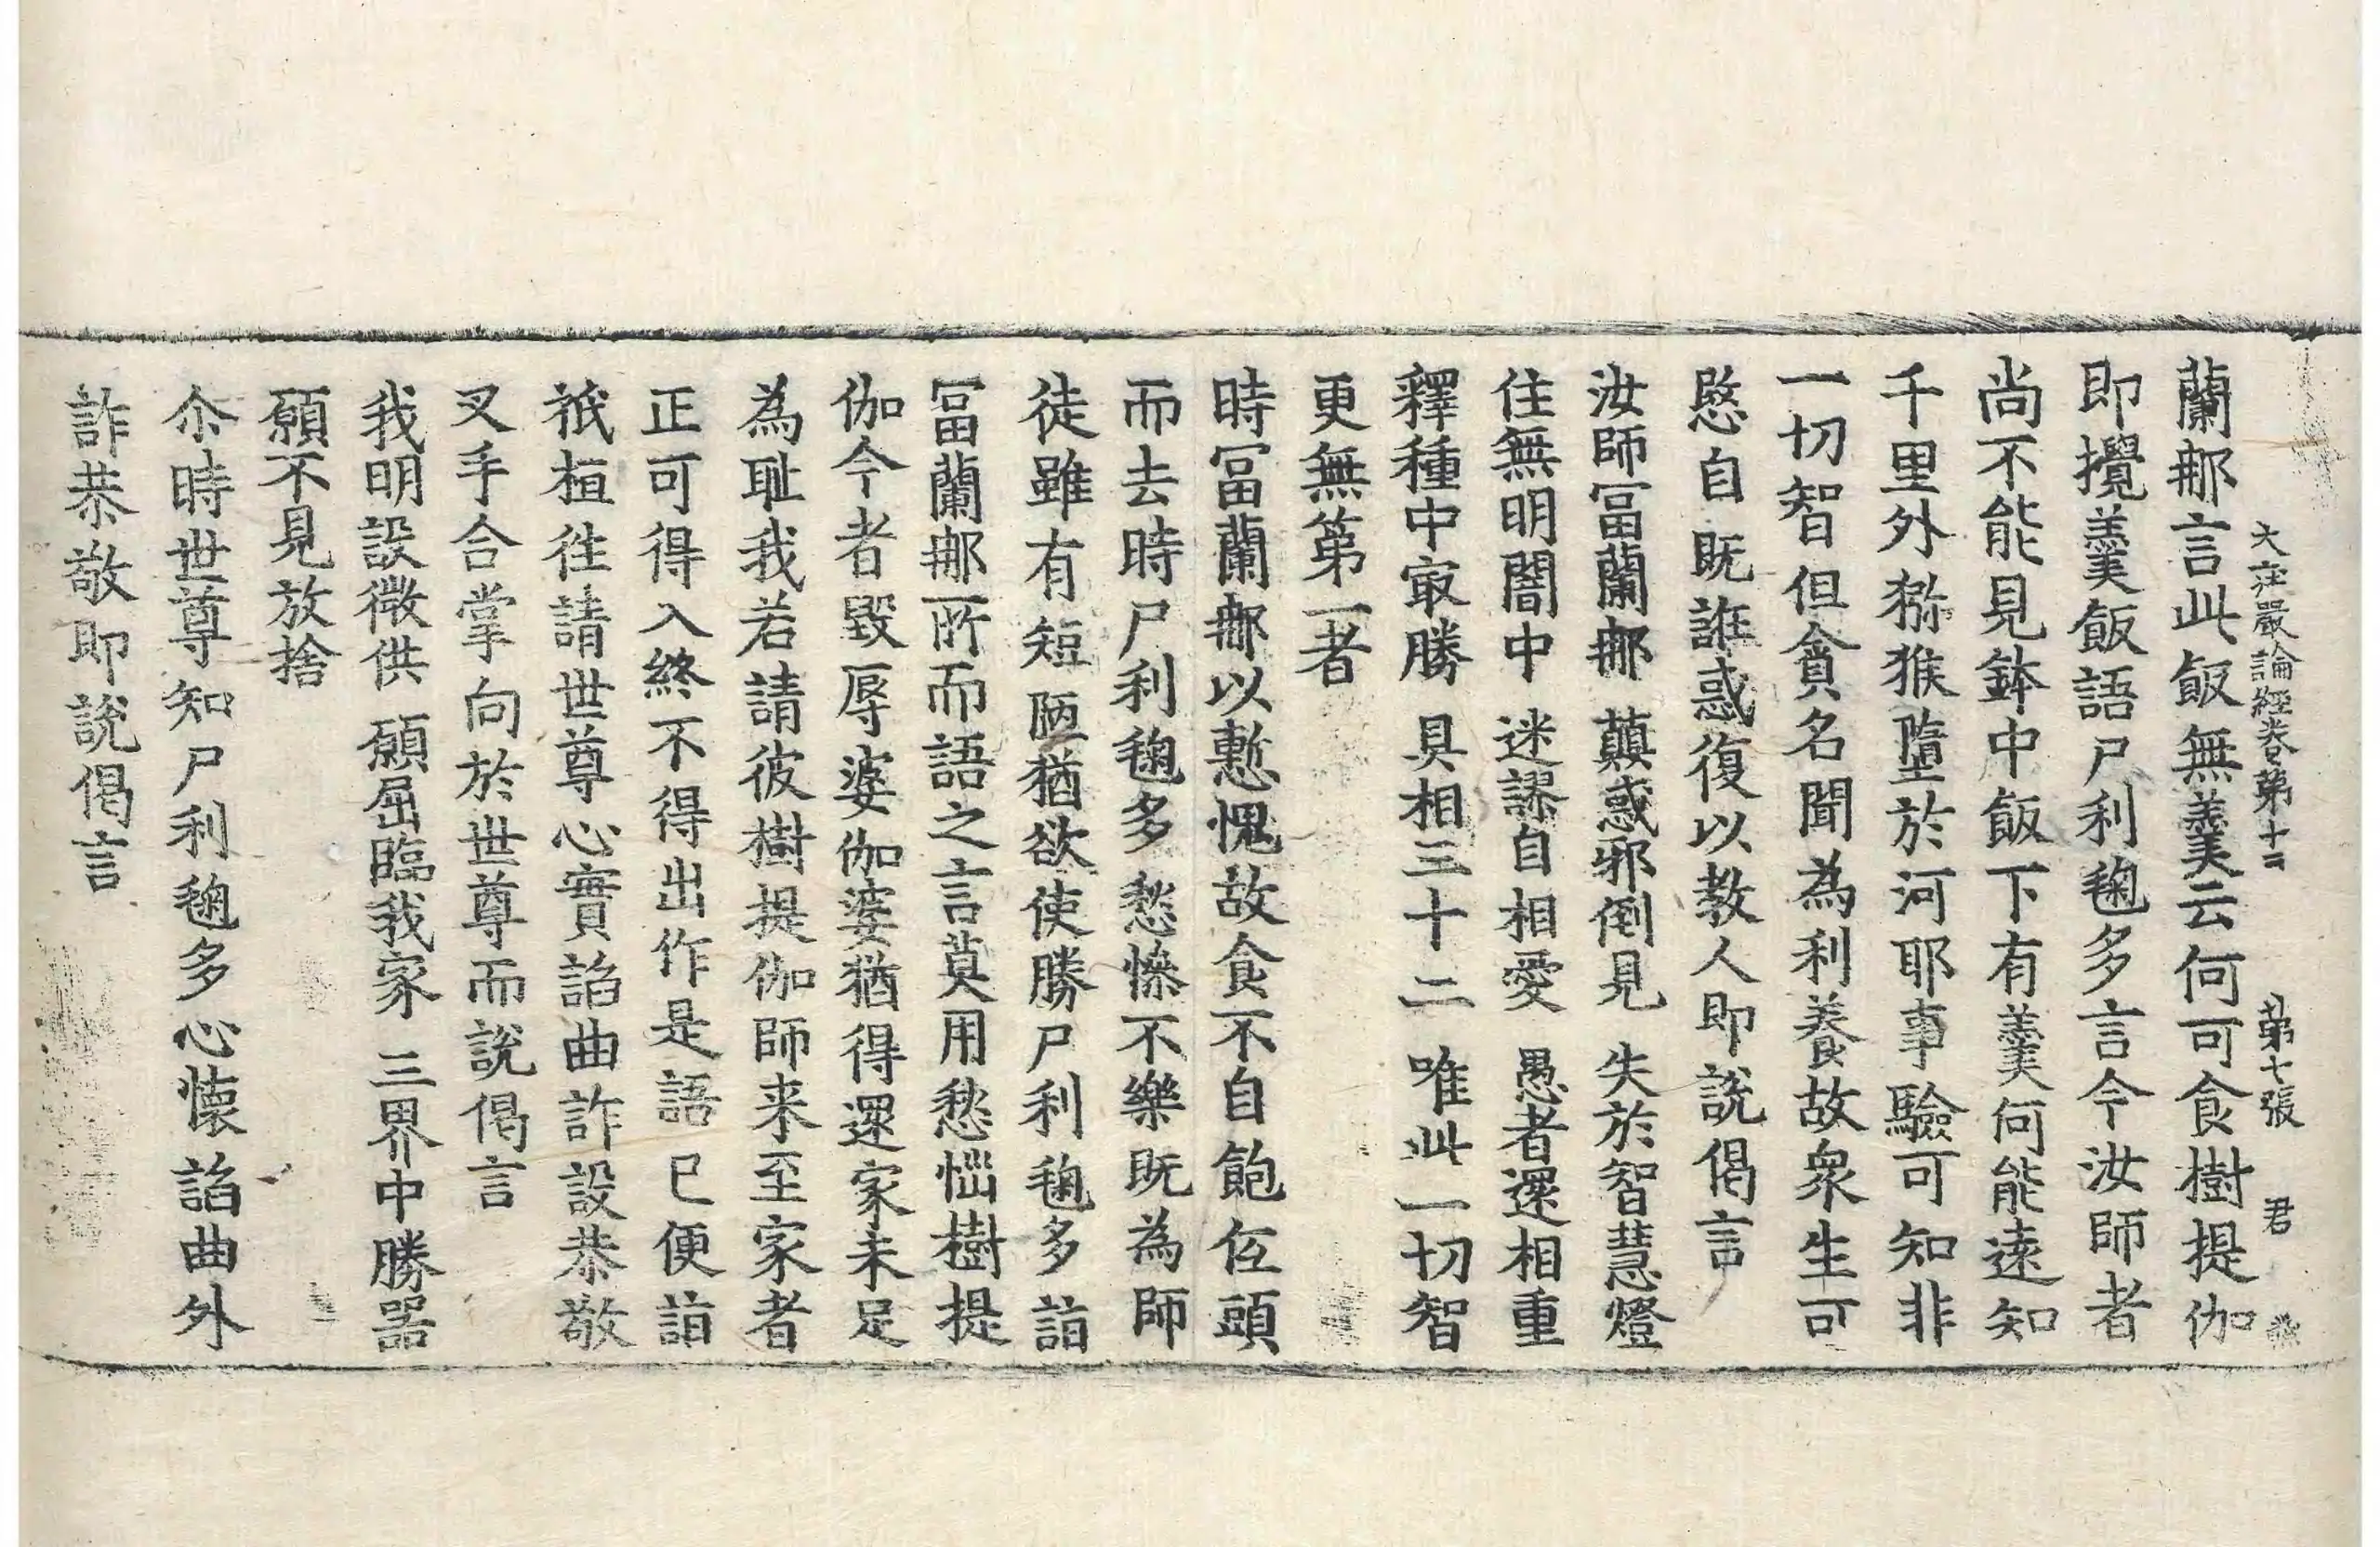 大莊嚴論經卷第十三 第七張 君
蘭𨚗言此飯無羹云何可食樹提伽
即攪羹飯語尸利毱多言今汝師者
尚不能見鉢中飯下有羹何能遠知
千里外獼猴墮於河耶事驗可知非
一切智但貪名聞為利養故衆生可
愍自既誑惑復以教人即說偈言
汝師冨蘭𨚗 顛惑邪倒見 失於智慧燈
住無明闇中 迷謬自相愛 愚者還相重
釋種中㝡勝 具相三十二 唯此一切智
更無第一者
時冨蘭𨚗以慙愧故食不自飽低頭
而去時尸利毱多愁慘不樂既為師
徒雖有短陋猶欲使勝尸利毱多詣
冨蘭𨚗所而語之言莫用愁惱樹提
伽今者毀辱婆伽婆猶得還家未足
為耻我若請彼樹提伽師来至家者
正可得入終不得出作是語已便詣
祇桓徃請世尊心實諂曲詐設恭敬
叉手合掌向於世尊而說偈言
我明設微供 願屈臨我家 三界中勝器
願不見放捨
尒時世尊知尸利毱多心懷諂曲外
詐恭敬即說偈言